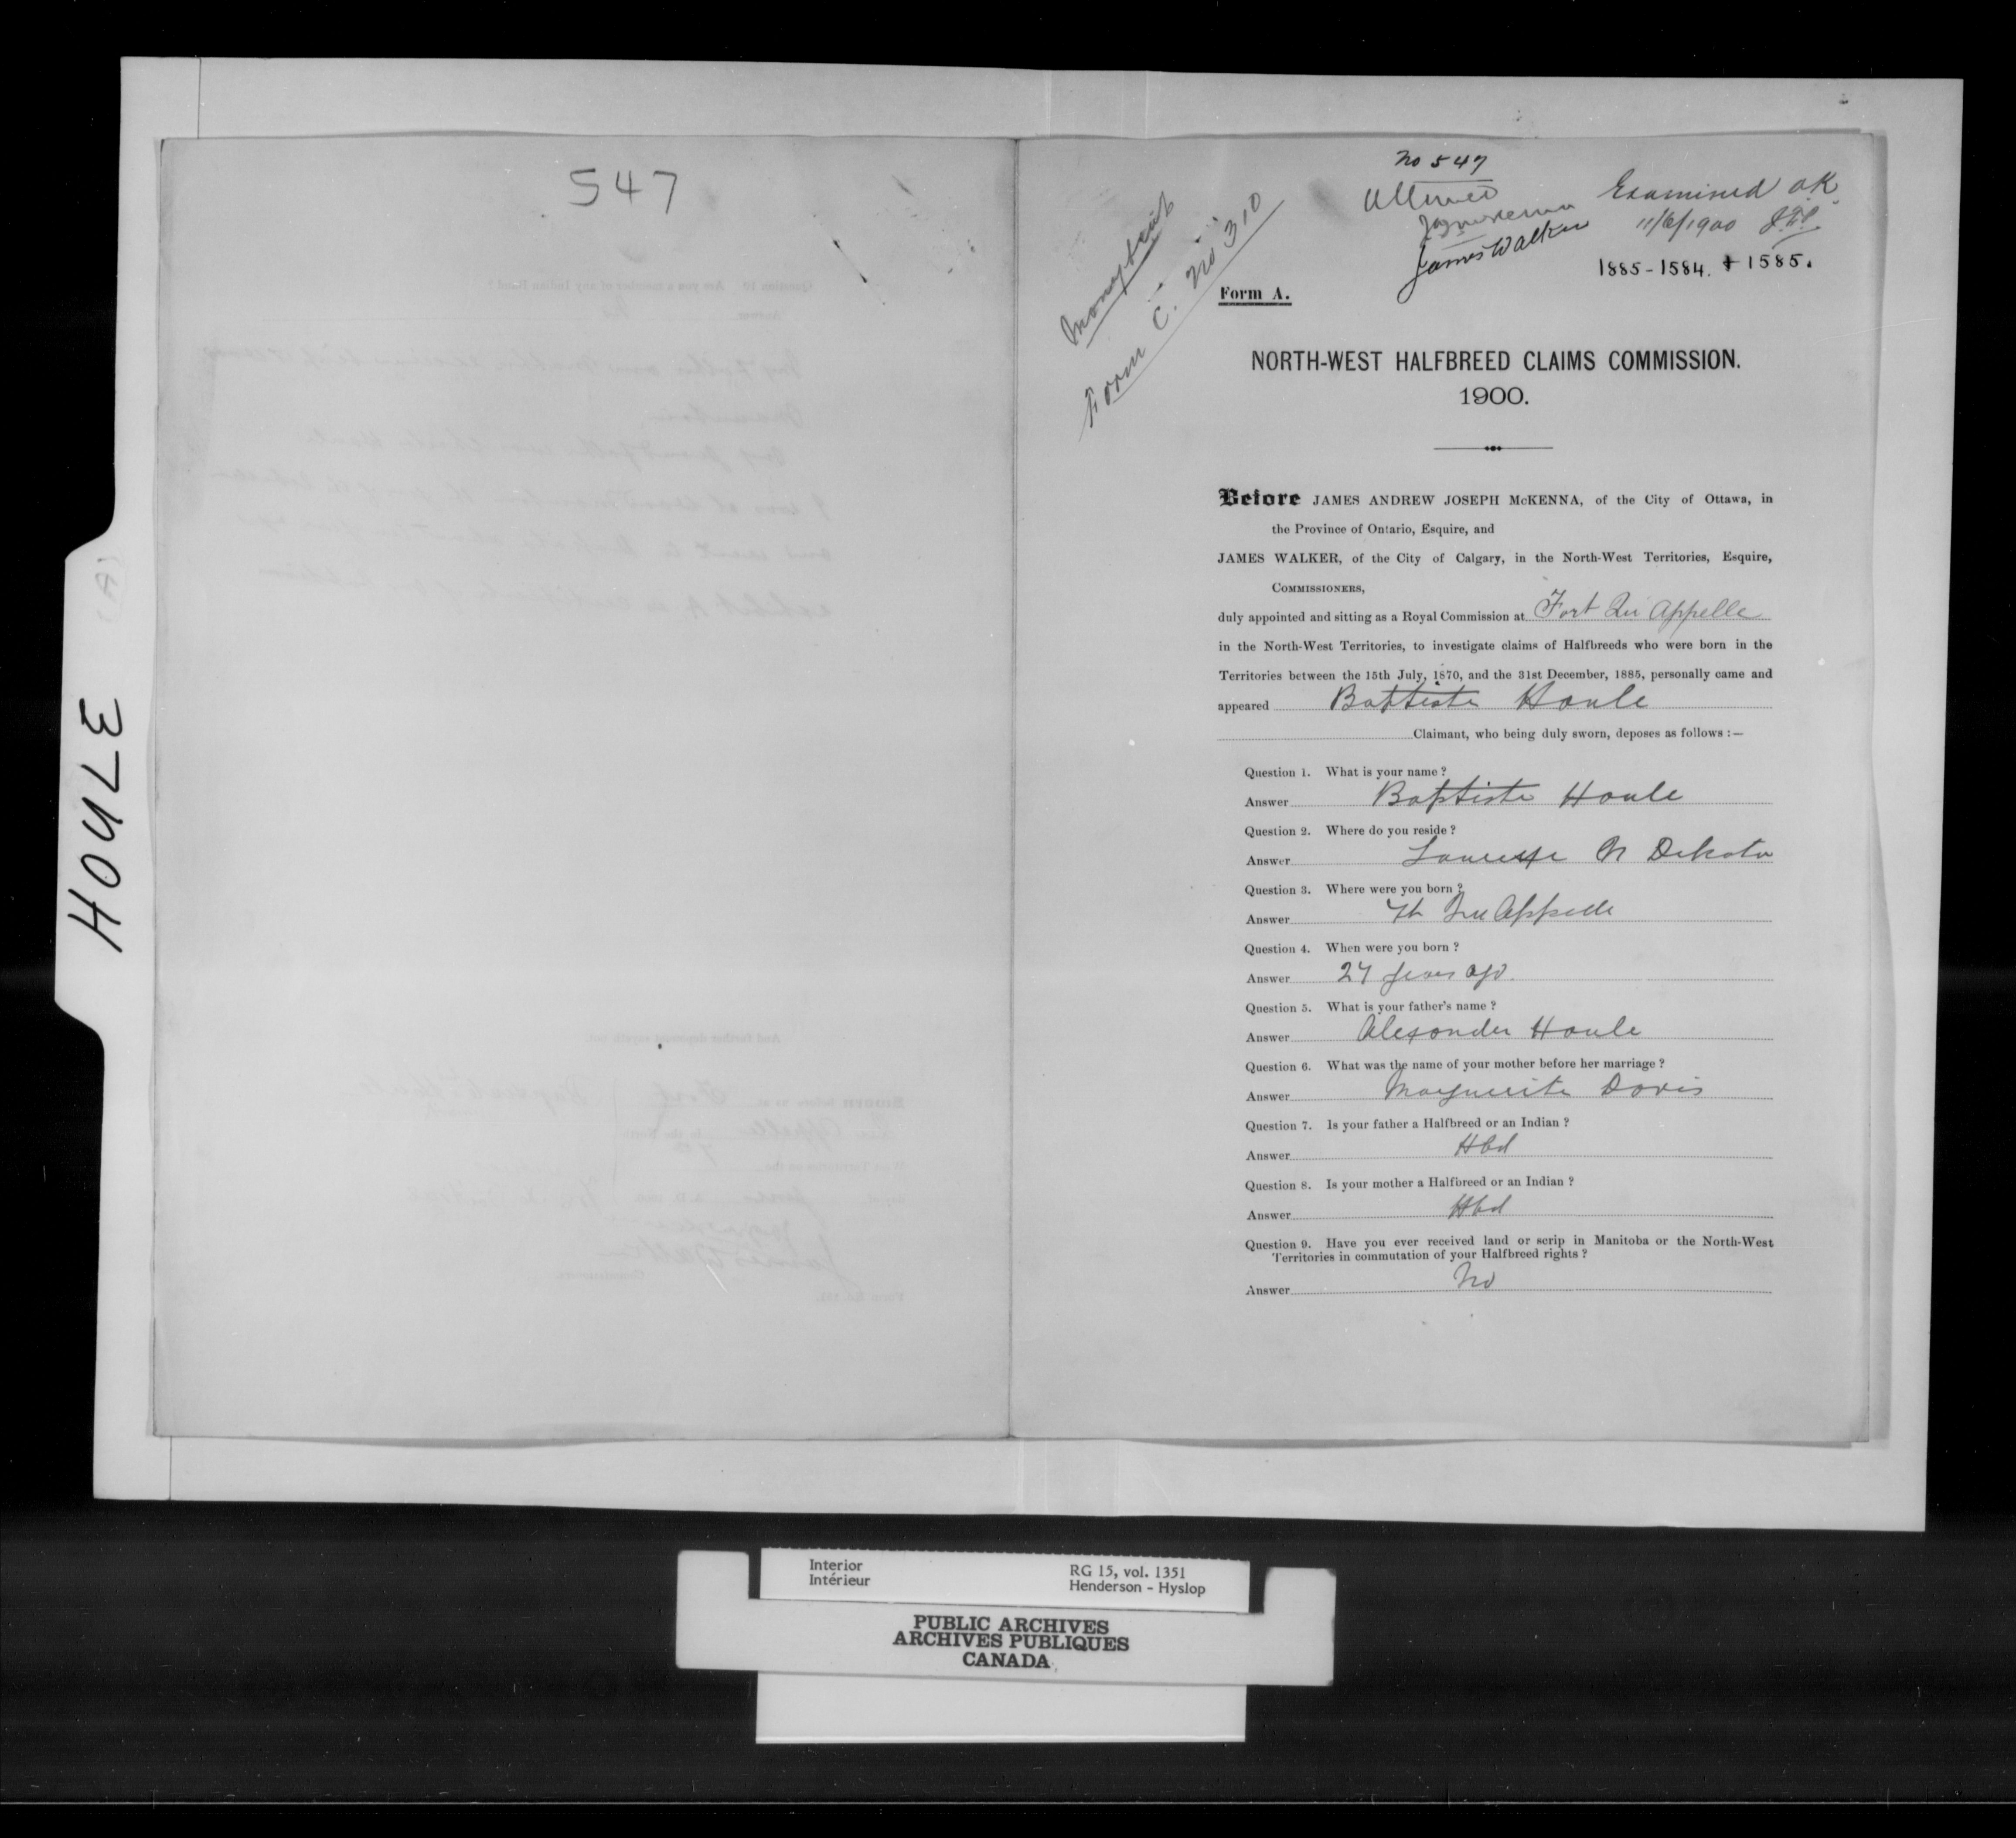 547
HOULE
No 547
Allowed
JAJMcKenna
James Walker
Examined O.K.
11/6/1900
1885-1584. & 1585.
Money Scrip
Form C. No 310
Form A.
NORTH-WEST HALFBREED CLAIMS COMMISSION.
1900.
Before JAMES ANDREW JOSEPH McKENNA, of the City of Ottawa, in
the Province of Ontario, Esquire, and
JAMES WALKER, of the City of Calgary, in the North-West Territories, Esquire,
COMMISSIONERS,
duly appointed and sitting as a Royal Commission at Fort Qu Appelle
in the North-West Territories, to investigate claims of Halfbreeds who were born in the
Territories between the 15th July, 1870, and the 31st December, 1885, personally came and
appeared Baptiste Houle
Claimant, who being duly sworn, deposes as follows :—
Question 1. What is your name ?
Answer Baptiste Houle
Question 2. Where do you reside ?
Answer N Dakota
Question 3. Where were you born ?
Answer Ft Qu Appelle
Question 4. When were you born ?
Answer 27 years ago.
Question 5. What is your father's name ?
Answer Alexander Houle
Question 6. What was the name of your mother before her marriage ?
Answer Marguerite Davis
Question 7. Is your father a Halfbreed or an Indian ?
Answer Hbd
Question 8. Is your mother a Halfbreed or an Indian ?
Answer Hbd
Question 9. Have you ever received land or scrip in Manitoba or the North-West
Territories in commutation of your Halfbreed rights ?
Answer No
Interior
Intérieur
RG 15, vol. 1351
Henderson - Hyslop
PUBLIC ARCHIVES
ARCHIVES PUBLIQUES
CANADA